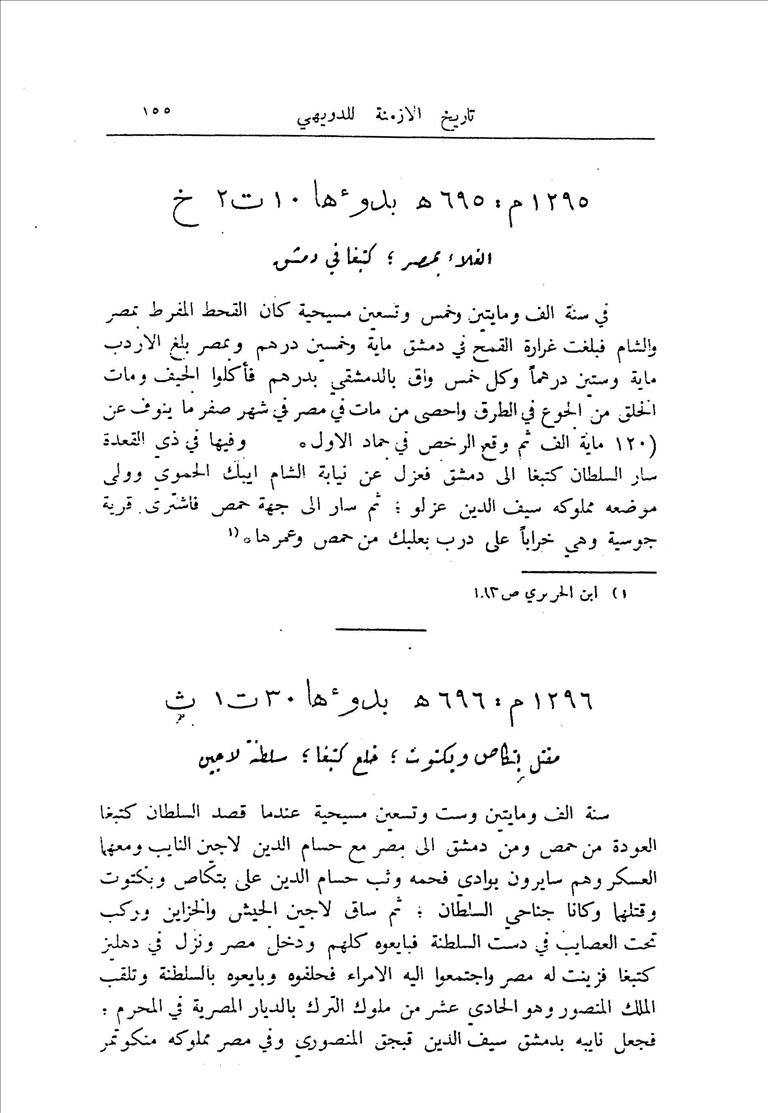 تاريخ الازمنة للدويهي ١٥٥
١٢٩٥ م : ٦٩٥ ه بدوءها ١٠ ت٢ خ
الغلاء بمصر ؛ كتبغا في دمشق
في سنة الف ومايتين وخمس وتسعين مسيحية كان القحط المفرط بمصر
والشام فبلغت غرارة القمح في دمشق ماية وخمسين درهم وبمصر بلغ الاردب
ماية وستين درهماً وكل خمس واق بالدمشقي بدرهم فأكلوا الجيف ومات
الخلق من الجوع في الطرق واحصى من مات في مصر في شهر صفر ما ينوف عن
(١٢٠ ماية الف ثم وقع الرخص في جماد الاول ٠ وفيها في ذي القعدة
سار السلطان كتبغا الى دمشق فعزل عن نيابة الشام ايبك الحموي وولى
موضعه مملوكه سيف الدين عزلو ؛ ثم سار الى جهة حمص فاشترى قرية
جوسية وهي خراباً على درب بعلبك من حمص وعمرها ٠ (١
١) ابن الحريري ص ١٠١٣
١٢٩٦ م : ٦٩٦ ه بدوءها ٣٠ ت١ ث
مقتل بتكاص وبكتوت ؛ خلع كتبغا ؛ سلطنة لاجين
سنة الف ومايتين وست وتسعين مسيحية عندما قصد السلطان كتبغا
العودة من حمص ومن دمشق الى مصر مع حسام الدين لاجين النايب ومعهما
العسكر وهم سايرون بوادي فحمه وثب حسام الدين على بتكاص وبكتوت
وقتلهما وكانا جناحي السلطان ؛ ثم ساق لاجين الجيش والخزاين وركب
تحت العصايب في دست السلطنة فبايعوه كلهم ودخل مصر ونزل في دهليز
كتبغا فزينت له مصر واجتمعوا اليه الامراء فحلفوه وبايعوه بالسلطنة وتلقب
الملك المنصور وهو الحادي عشر من ملوك الترك بالديار المصرية في المحرم ؛
فجعل نايبه بدمشق سيف الدين قبجق المنصوري وفي مصر مملوكه منكوتمر